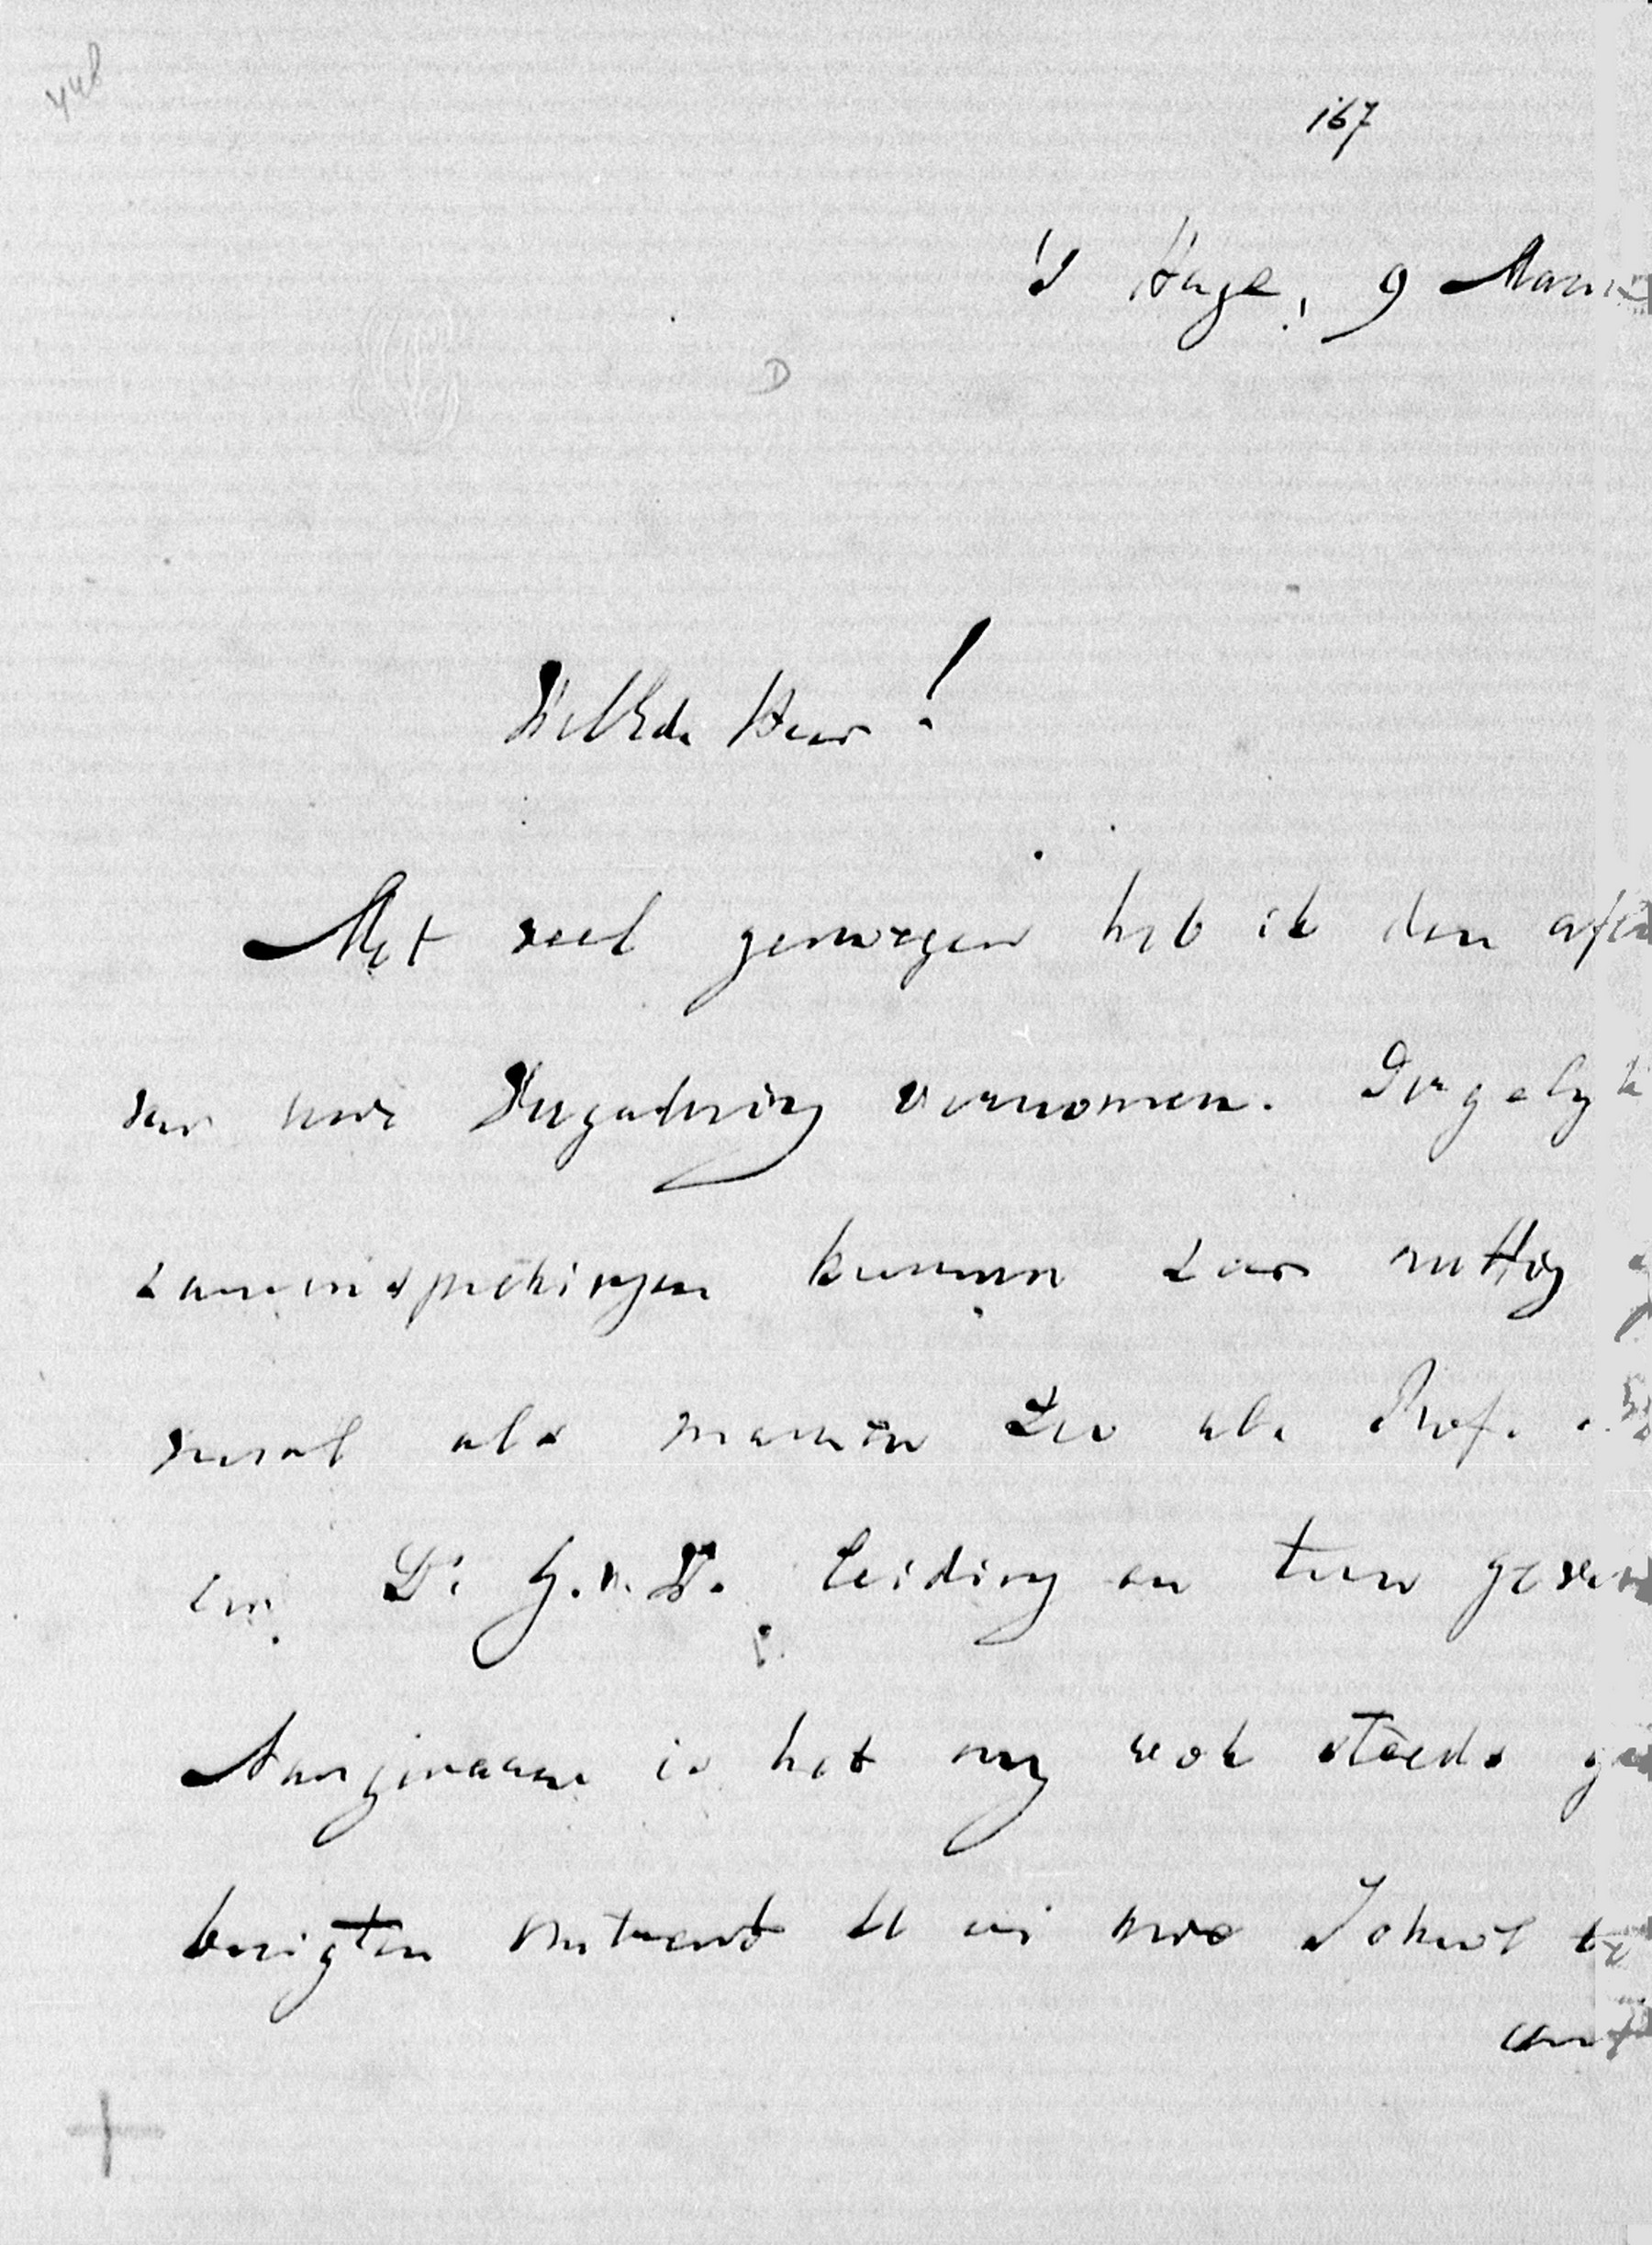 448
167
's Hage, 9 Maar
D
WelEd. Heer!
Met veel genoegen heb ik den afl
van uwe Vergadering vernomen. Dergelyk
zamensprekingen kunnen zeer nuttig
vooral als mannen zoo als Prof.
en Dr. G. v. V. leiding en toon geven
Aangenaam is het my ook steeds
berigten omtrent de uwe School te